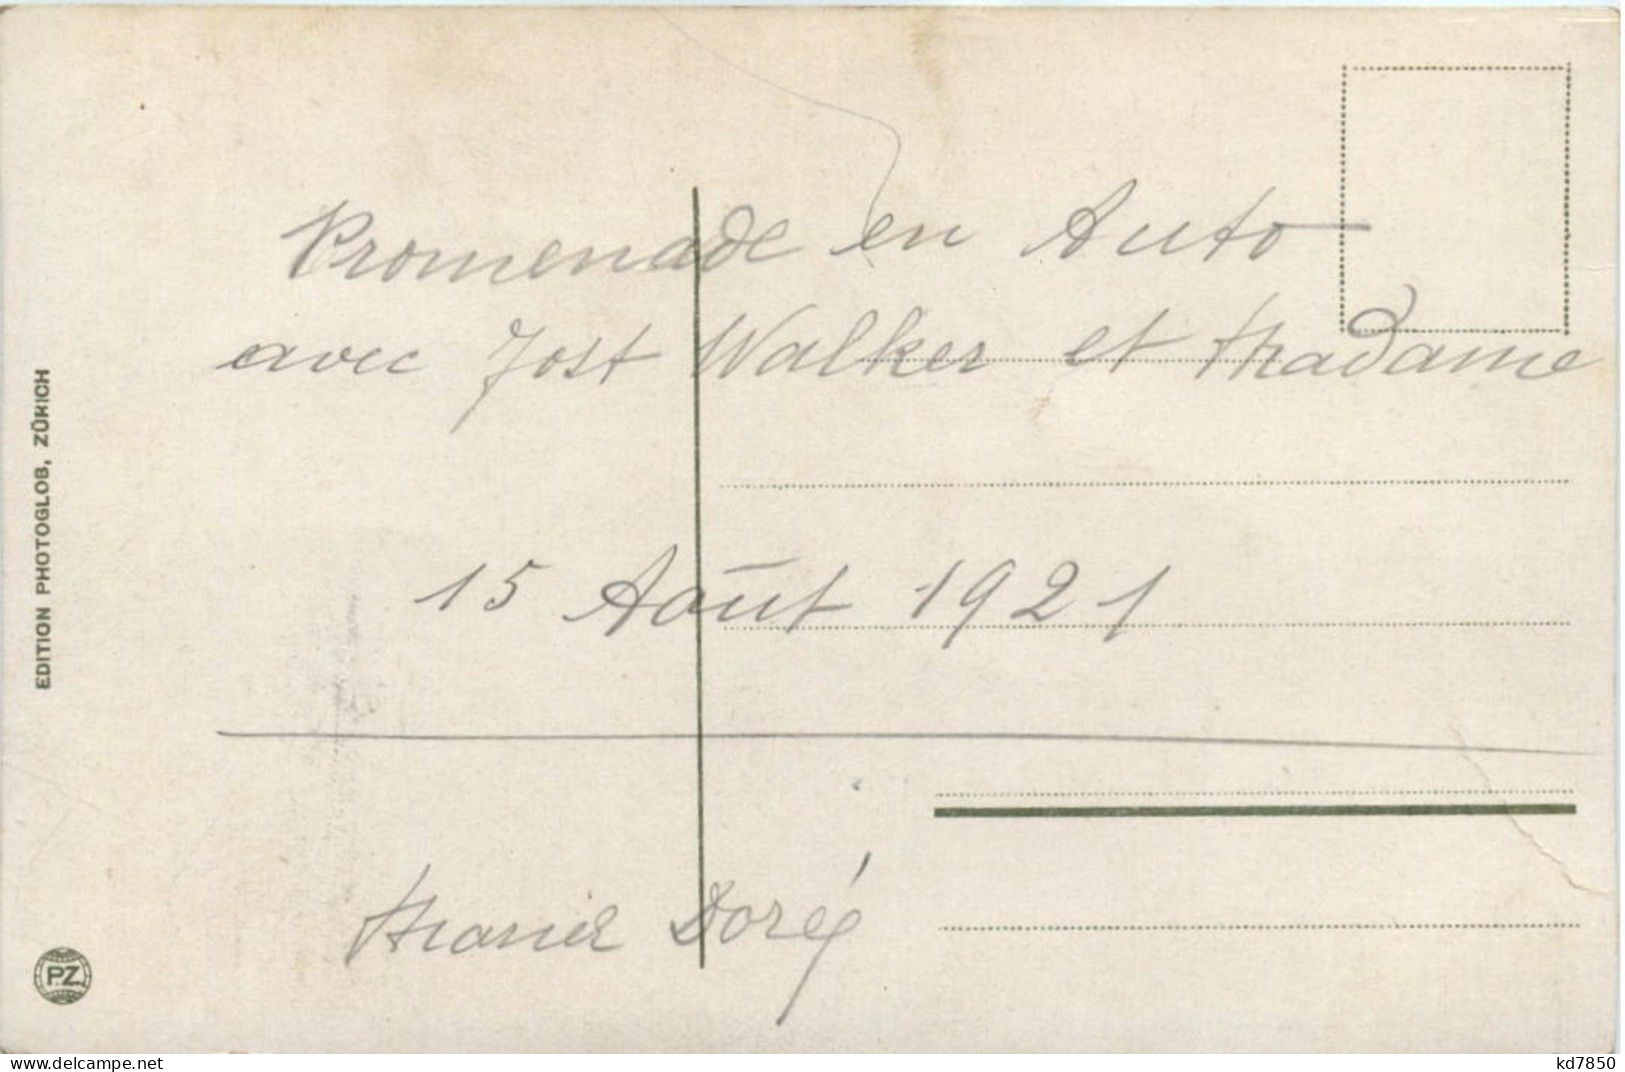 Promenade en Auto
avec Jost Walker et Madame
15 Août 1921
Doré
EDITION PHOTOGLOB, ZÜRICH
P.Z.
www.delcampe.net
kd7850